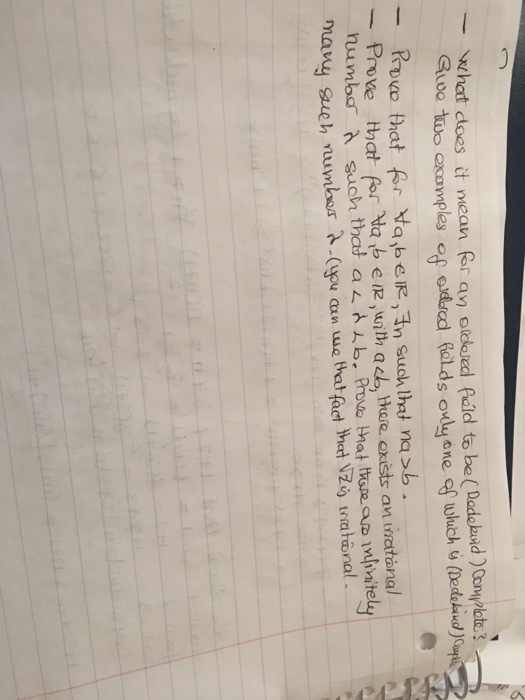 - What does it mean for an ordered field to be (Dedekind) Complete?
Give two examples of ordered fields only one of which is (Dedekind)
- Prove that for ∀a,b∈ℝ, ∃n such that na>b.
- Prove that for ∀a,b∈ℝ, with a<b, there exists an irrational
number λ such that a<λ<b. Prove that there are infinitely
many such numbers λ. (you can use that fact that √2 is irrational.